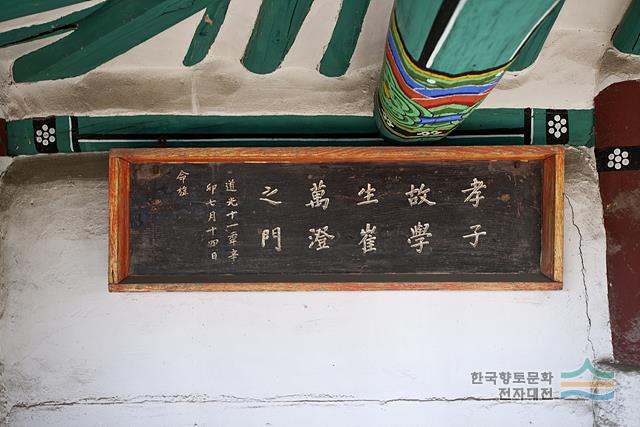 孝子
故學
生崔
萬澄
之門
道光十一年辛
卯七月十四日
命旌
한국향토문화
전자대전